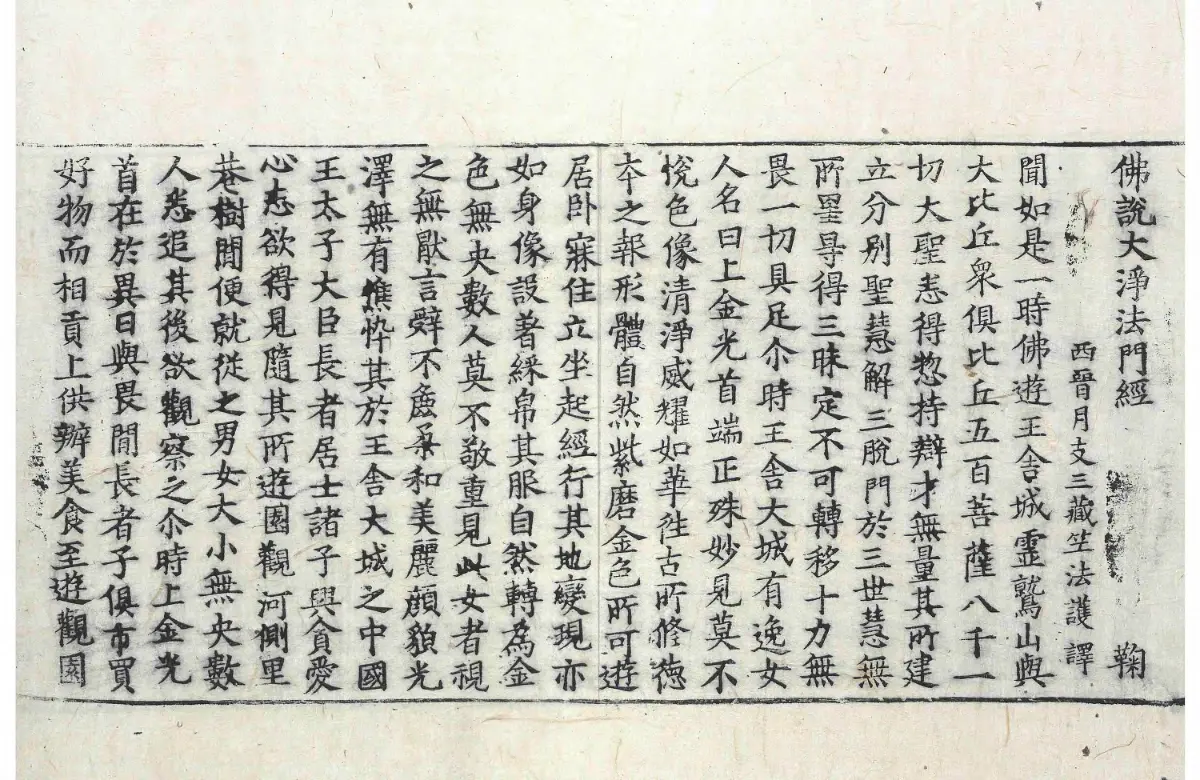 佛說大淨法門經 鞠
西晉月支三藏竺法護譯
聞如是一時佛遊王舍城靈鷲山與
大比丘衆俱比丘五百菩薩八千一
切大聖悉得惣持辯才無量其所建
立分別聖慧解三脫門於三世慧無
所罣㝵得三昧定不可轉移十力無
畏一切具足尒時王舍大城有逸女
人名曰上金光首端正殊妙見莫不
恱色像清淨威耀如華徃古所修德
夲之報形體自然紫磨金色所可遊
居卧寐住立坐起經行其地變現亦
如身像設著綵帛其服自然轉為金
色無央數人莫不敬重見此女者視
之無猒言辭不麁柔和美麗顔貌光
澤無有憔悴其於王舍大城之中國
王太子大臣長者居士諸子興貪愛
心悉欲得見隨其所遊園觀河側里
巷樹閒便就從之男女大小無央數
人悉追其後欲觀察之尒時上金光
首在於異日與畏閒長者子俱市買
好物而相貢上供辦美食至遊觀園